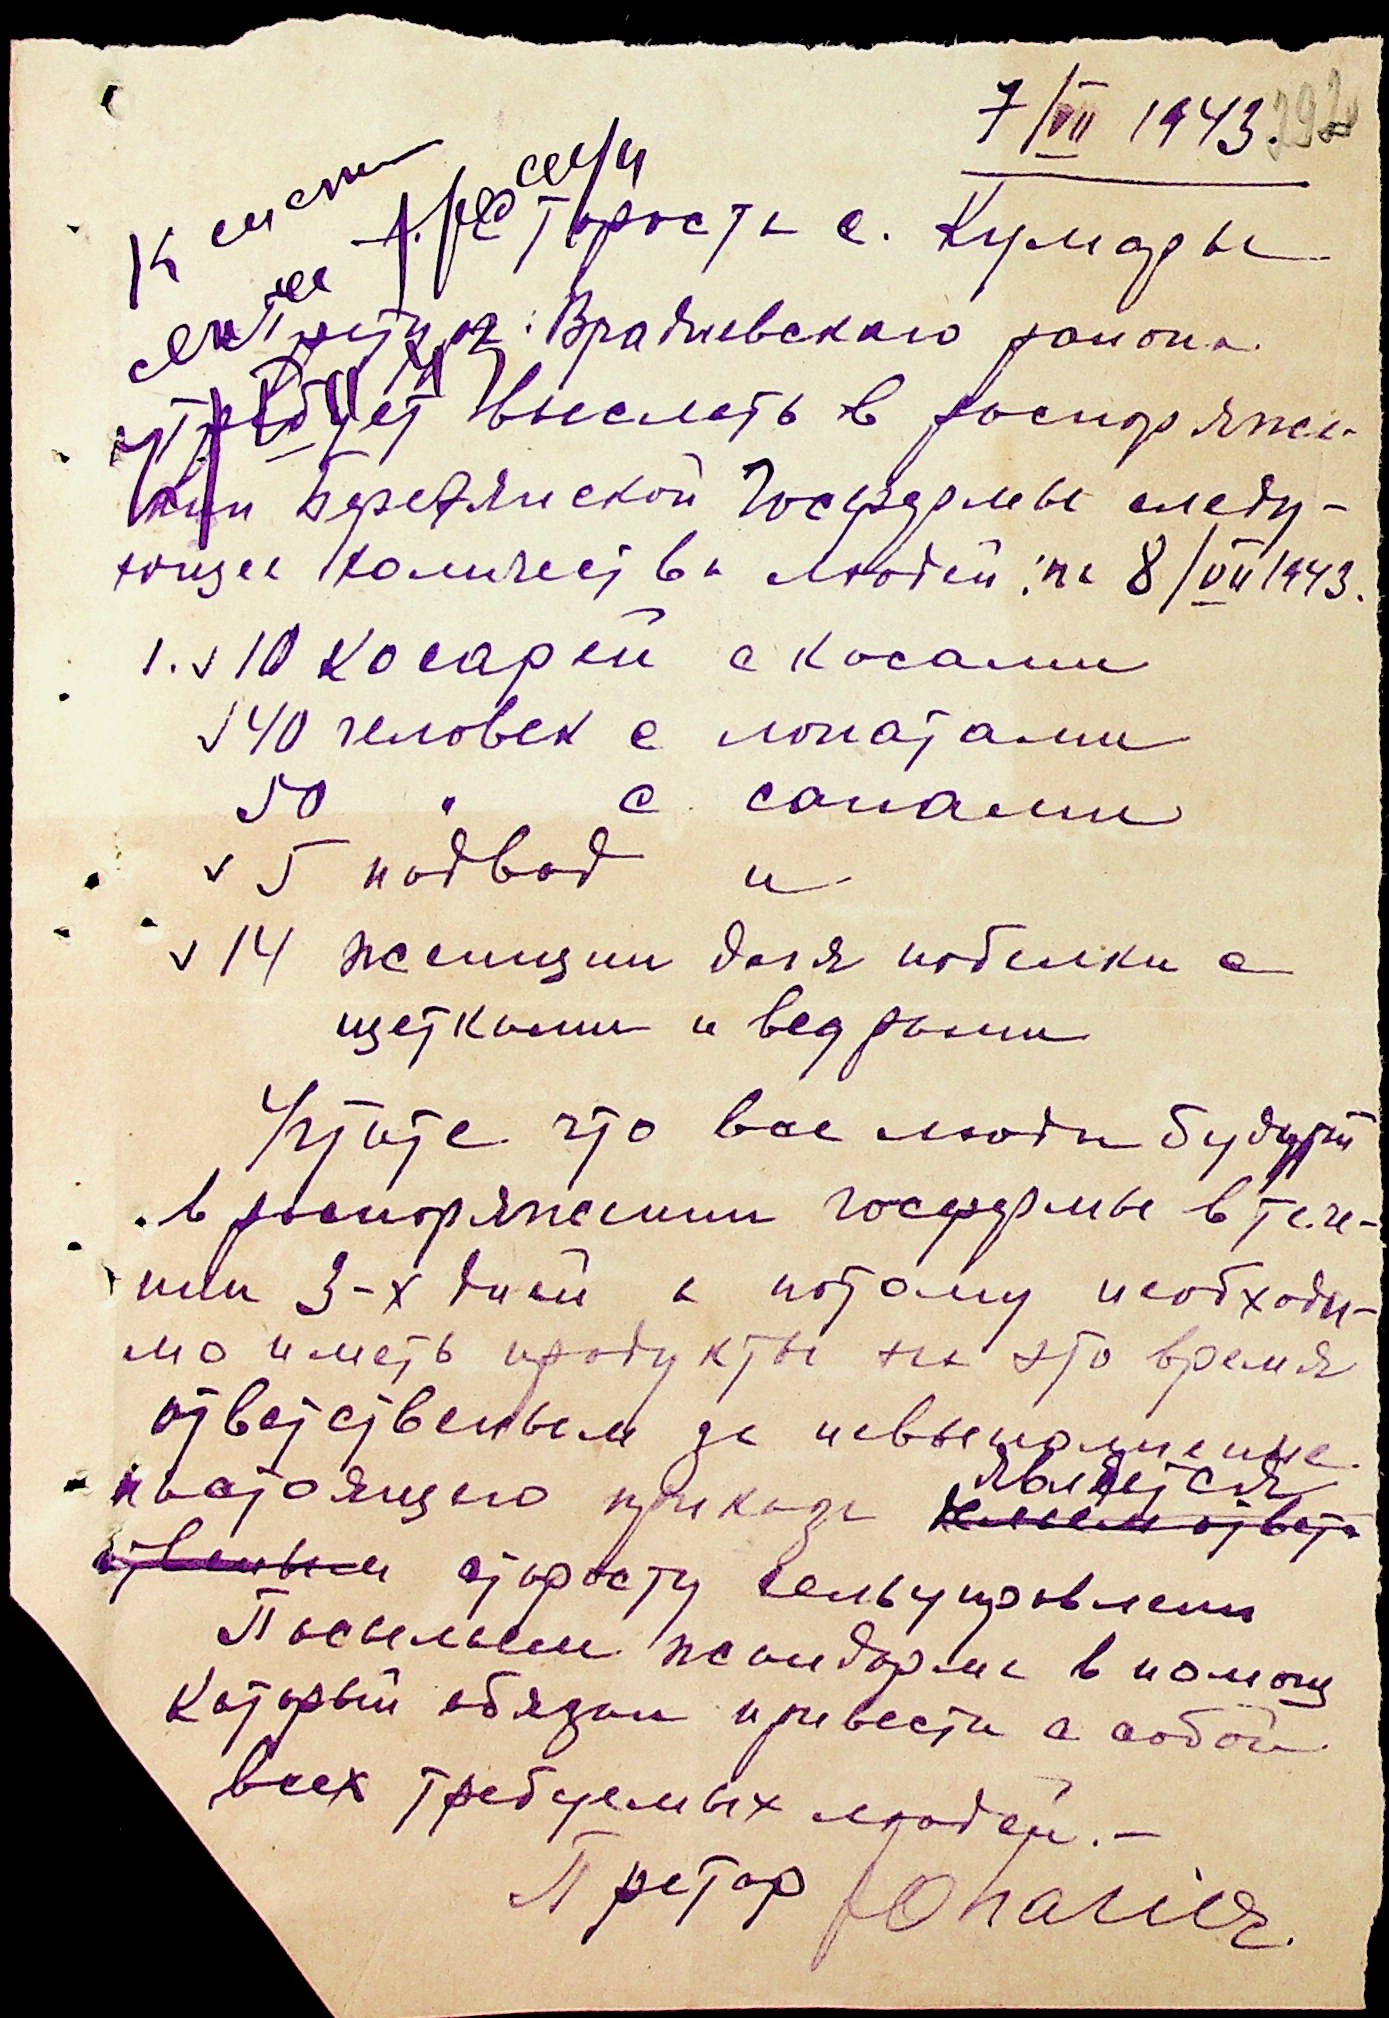 7/VII 1943.
292
Старосте с. Кумары
Претура Врадиевского района
требует выслать в распоряже-
нии Березянской Госфермы следу-
ющее количества людей: на 8/VII 1943.
1. 10 Косарей с косами
40 человек с лопатами
50 " с сапами
5 подвод и
14 женщин для побелки с
щетками и ведрами
Учтите что все люди будут
в распоряжении госфермы в тече-
нии 3-х дней а потому необходи-
мо иметь продукты на это время
ответственым за невыполнение
настоящего приказа является
старосту сельуправлени
Посылаем жандарма в помощ
который обязан привести с собой
всех требуемых людей.-
Претор